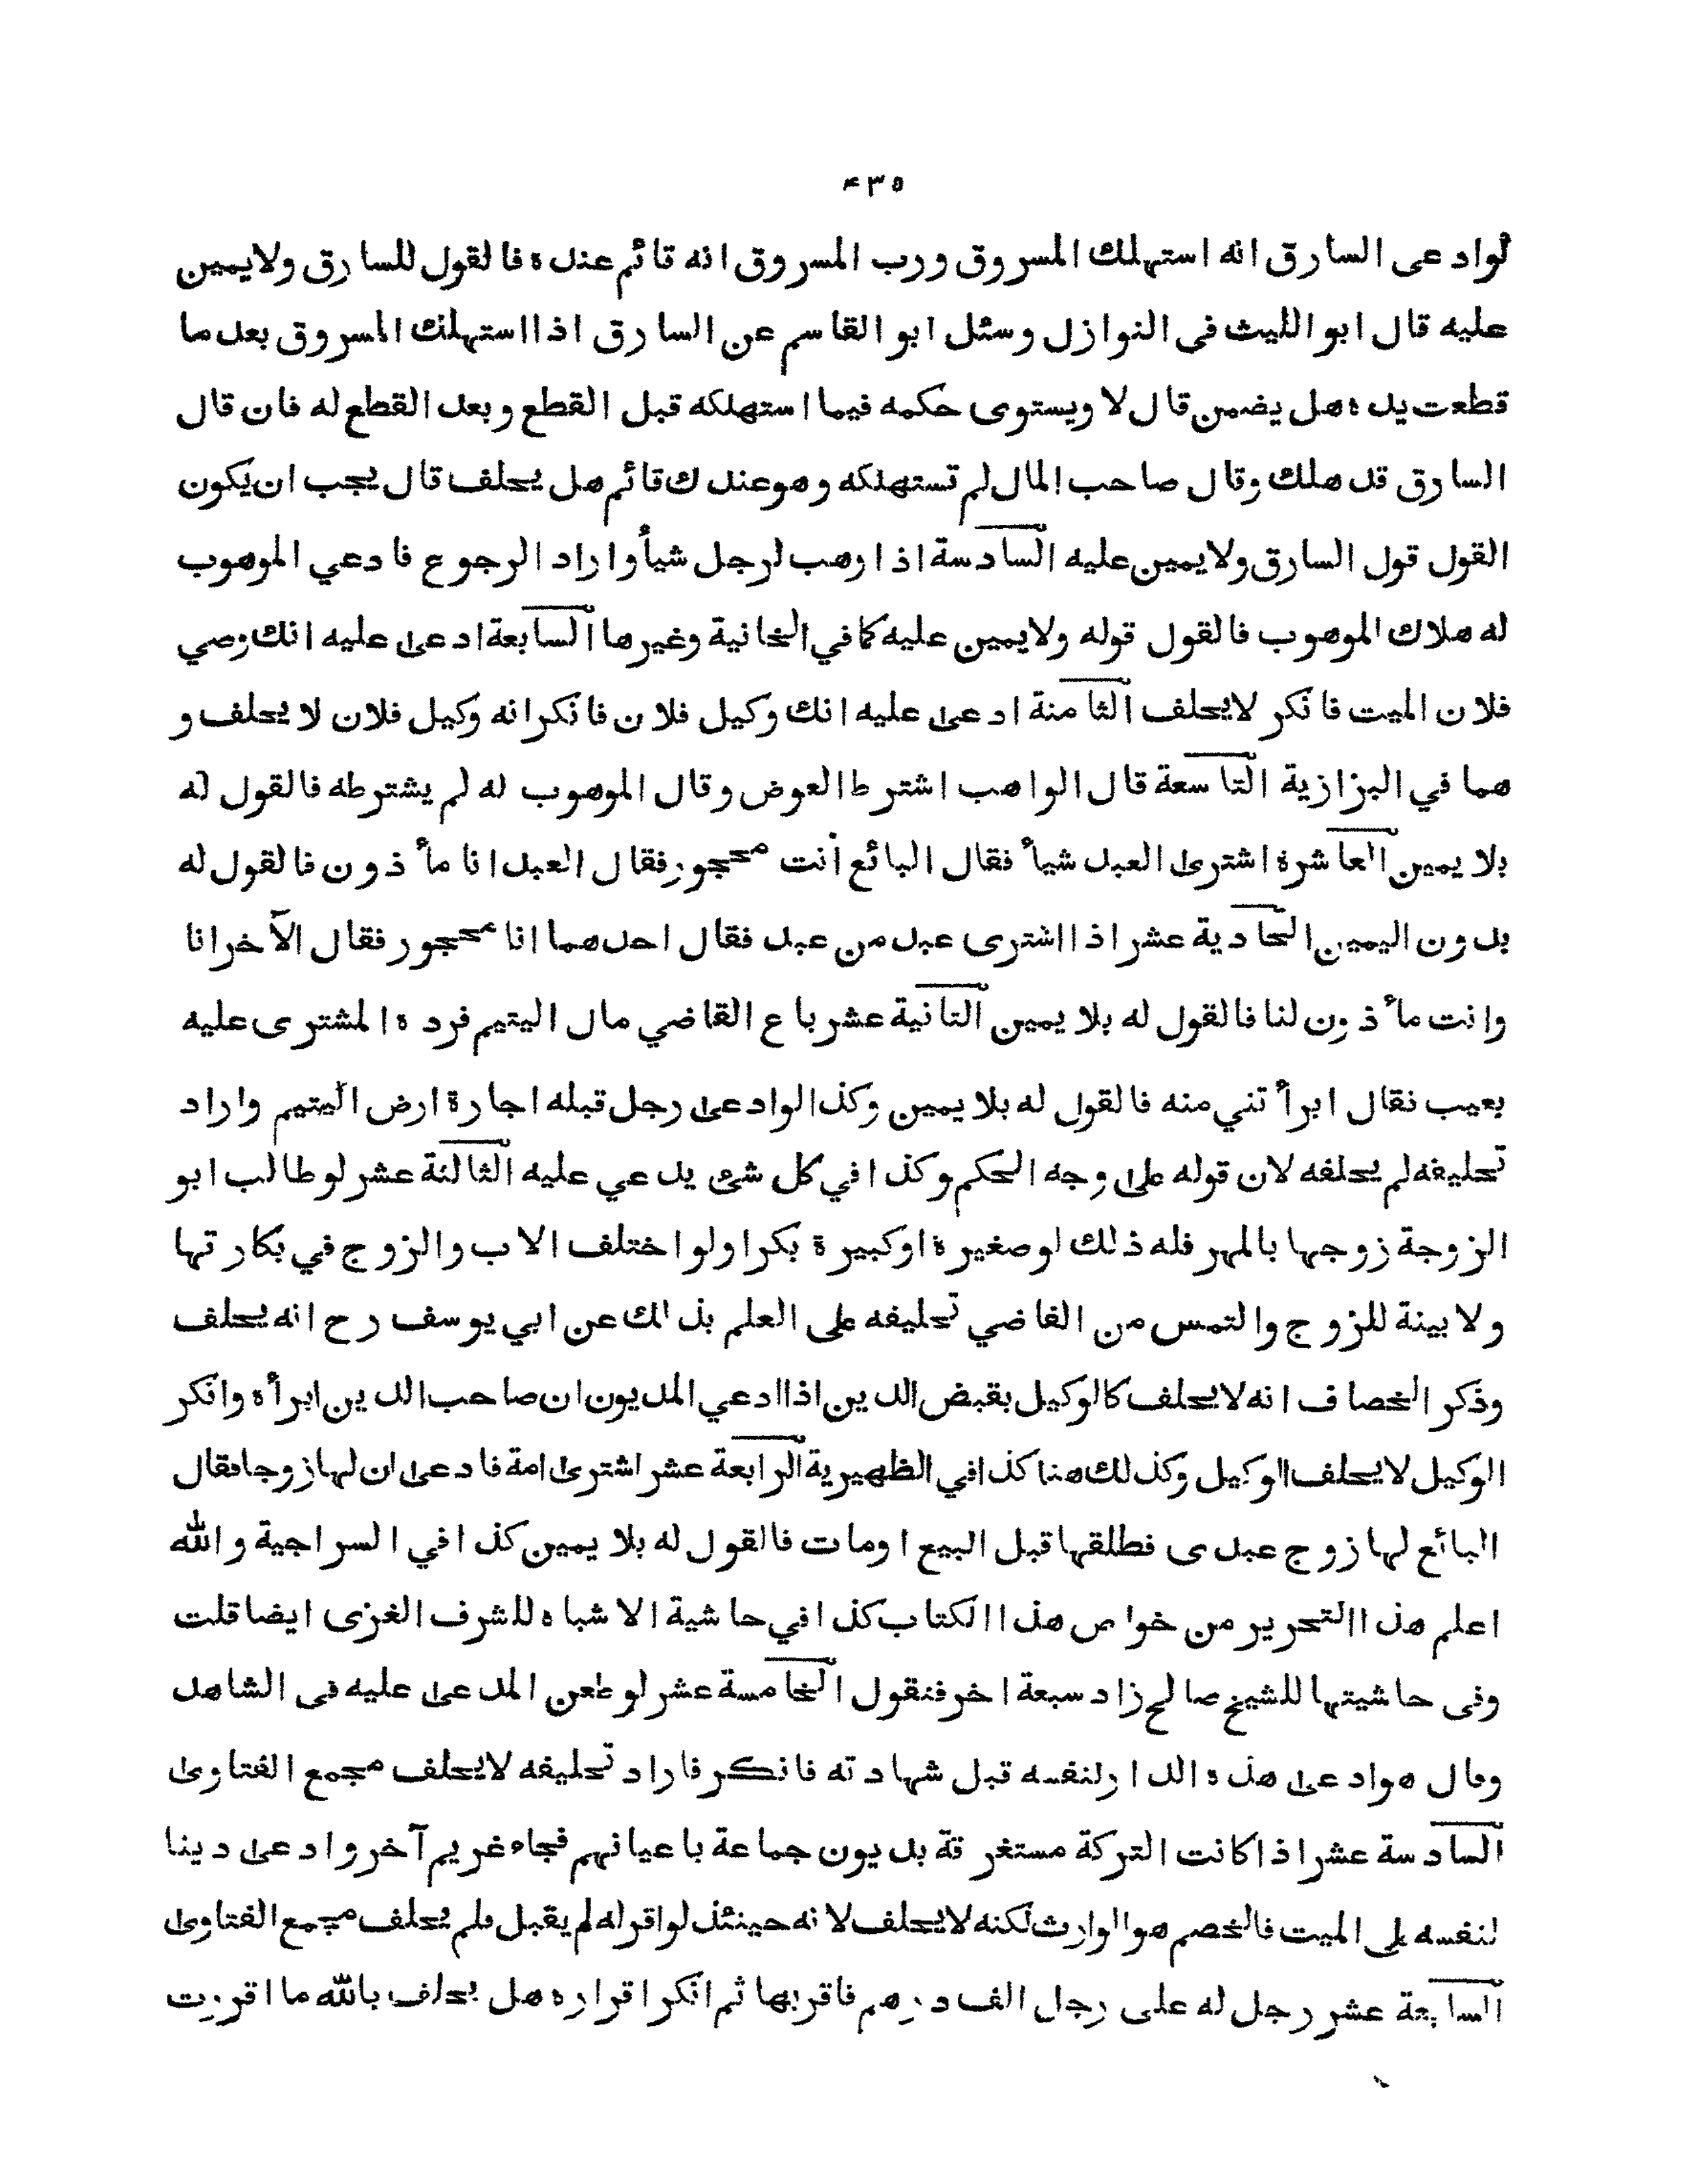 ۴۳۵
لوادعى السارق انه استهلك المسروق ورب المسروق انه قائم عنده فالقول للسارق ولايمين
عليه قال ابو الليث فى النوازل وسئل ابو القاسم عن السارق اذا استهلك المسروق بعدما
قطعت يده هل يضمن قال لا ويستوى حكمه فيما استهلكه قبل القطع وبعد القطع له فان قال
السارق قد هلك وقال صاحب المال لم تستهلكه وهو عندك قائم هل يحلف قال يجب ان يكون
القول قول السارق ولايمين عليه السادسة اذا وهب لرجل شيأ واراد الرجوع فادعي الموهوب
له هلاك الموهوب فالقول قوله ولايمين عليه كما في الخانية وغيرها السابعة ادعى عليه انك وصي
فلان الميت فانكر لايحلف الثامنة ادعى عليه انك وكيل فلان فانكرانه وكيل فلان لايحلف و
هما في البزازية التاسعة قال الواهب اشترط العوض وقال الموهوب له لم يشترطه فالقول له
بلا يمين العاشرة اشترى العبد شيأ فقال البائع أنت محجور فقال العبد انا مأذون فالقول له
بدون اليمين الحادية عشر اذا اشترى عبد من عبد فقال احدهما انا محجور فقال الآخر انا
وانت مأذون لنا فالقول له بلا يمين الثانية عشر باع القاضي مال اليتيم فرده المشترى عليه
بعيب نقال ابرأتني منه فالقول له بلا يمين وكذا لوادعى رجل قبله اجارة ارض اليتيم واراد
تحليفه لم يحلفه لان قوله على وجه الحكم وكذا في كل شئ يدعي عليه الثالثة عشر لوطالب ابو
الزوجة زوجها بالمهر فله ذلك لو صغيرة اوكبيرة بكرا ولو اختلف الاب والزوج في بكارتها
ولا بينة للزوج والتمس من القاضي تحليفه على العلم بذلك عن ابي يوسف رح انه يحلف
وذكر الخصاف انه لايحلف كالوكيل بقبض الدين اذا ادعي المديون ان صاحب الدين ابرأه وانكر
الوكيل لايحلف الوكيل وكذلك هنا كذا في الظهيرية الرابعة عشر اشترى امة فادعى ان لها زوجا فقال
البائع لها زوج عبدى فطلقها قبل البيع اومات فالقول له بلا يمين كذا في السراجية والله
اعلم هذا التحرير من خواص هذا الكتاب كذا في حاشية الاشباه للشرف الغزى ايضا قلت
وفى حاشيتها للشيخ صالح زاد سبعة اخر فنقول الخامسة عشر لو طعن المدعى عليه فى الشاهد
وقال هو ادعى هذه الدار لنفسه قبل شهادته فانكر فاراد تحليفه لايحلف مجمع الفتاوى
السادسة عشر اذا كانت التركة مستغرقة بديون جماعة باعيانهم فجاء غريم آخر وادعى دينا
لنفسه على الميت فالخصم هو الوارث لكنه لايحلف لانه حينئذ لواقر له لم يقبل فلم يحلف مجمع الفتاوى
السابعة عشر رجل له على رجل الف درهم فاقر بها ثم انكر اقراره هل يحلف بالله ما اقررت